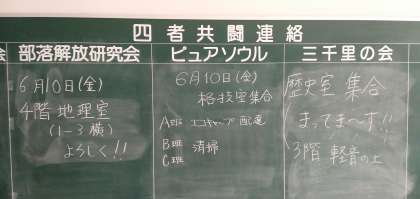 四者共闘連絡
会
部落解放研究会
6月10日(金)
4階地理室
(1-3横)
よろしく!!
ピュアソウル
6月10日(金)
格技室集合
A班 エコキャップ配達
B班 清掃
C班
三千里の会
歴史室 集合
まってま〜す!!
3階 軽音の上